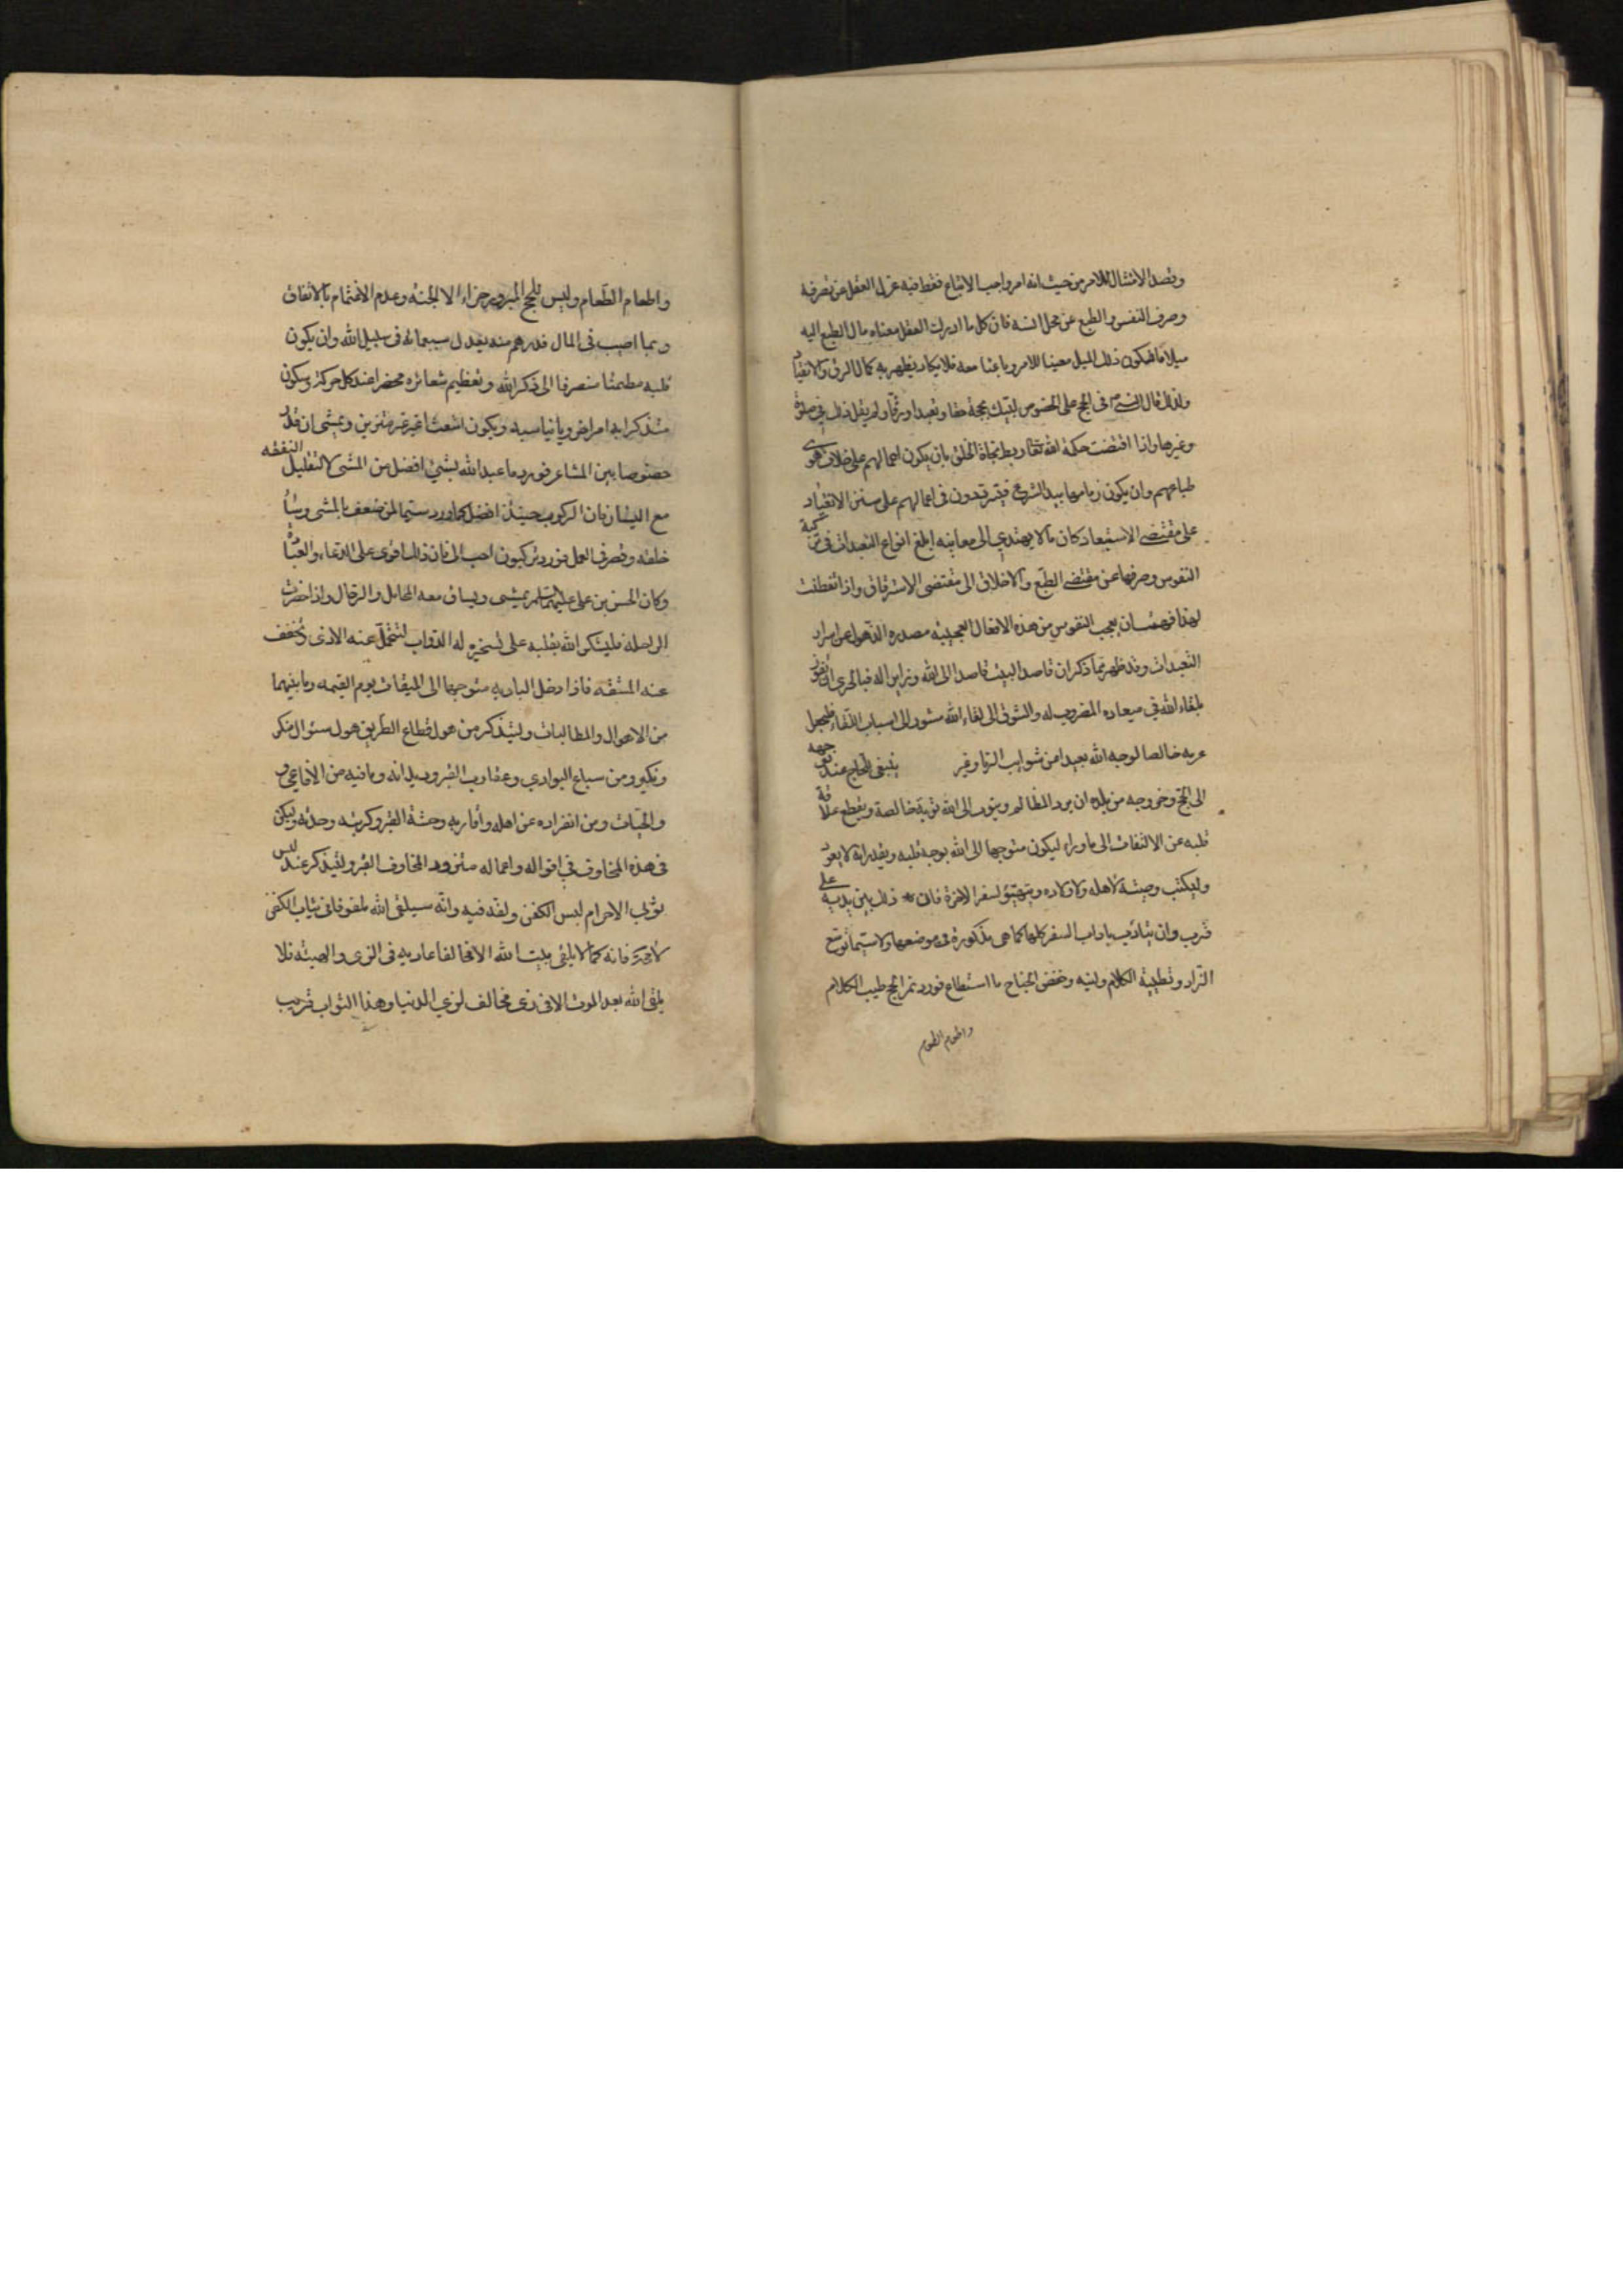 وقصد الامتثال للامر من حيث انه امر واجب الاتباع فقط فيه عزل العقل عن تصرفه
وصرف النفس والطبع عن محل انسه فان كل ما ادرك العقل معناه مال الطبع اليه
ميلا ما فيكون ذلك الميل معينا للامر وباعثا معه فلا يكاد يظهر به كمال الرق والانقياد
ولذلك قال في الحج على الخصوص لبيك بحجة حقا وتعبدا ورقا ولم يقل ذلك في صلوة
وغيرها واذا اقتضت حكمة الله تعالى ربط نجاة الخلق بان يكون اعمالهم على خلاف هوى
طباعهم وان يكون زمامها بيد الشرع فيترددون في اعمالهم على سنن الانقياد
على مقتضى الاستبعاد كان ما لا يهتدي الى معانيه ابلغ انواع التعبدات في تزكية
النفوس وصرفها عن مقتضى الطبع والاخلاق الى مقتضى الاسترقاق واذا تفطنت
لهذا فهمت ان تعجب النفوس من هذه الافعال العجيبة مصدره الذهول عن اسرار
التعبدات وقد ظهر بما ذكر ان قاصد البيت قاصد الى الله وزاير له فبالحرى ان يفوز
بلقاء الله في ميعاده المضروب له والشوق الى لقاء الله مشوق الى اسباب اللقاء فليجعل
عزمه خالصا لوجه الله بعيدا من شوايب الريا وغير ينبغي للحاج عند توجهه
الى الحج وخروجه من بلده ان يرد المظالم ويتوب الى الله توبة خالصة ويقطع علاقة
قلبه عن الالتفات الى ما وراء ليكون متوجها الى الله بوجه قلبه ويقدر انه لا يعود
وليكتب وصيته لاهله واولاده ويتهيؤ لسفر الاخرة فان ذلك بين يديه على
قرب وان يتادب باداب السفر كلها كما هى مذكورة في موضعها ولا سيما توسع
الزاد وتطييب الكلام ولينه وخفض الجناح ما استطاع فورد بر الحج طيب الكلام
واطعام الطعام
واطعام الطعام وليس للحج المبرور جزاء الا الجنة وعدم الاغتمام بالانفاق
وبما اصيب في المال فدرهم منه يعدل سبعمائة في سبيل الله وان يكون
قلبه مطمئنا منصرفا الى ذكر الله وتعظيم شعائره محضرا عند كل حركة وسكون
متذكرا به امر اخرويا يناسبه ويكون اشعث اغبر غير متزين ويمشى ان قدر
خصوصا بين المشاعر فورد ما عبد الله بشئ افضل من المشى لا لتقليل النفقه
مع اليسار فان الركوب حينئذ افضل كما ورد سيما لمن ضعف بالمشى وساء
خلقه وقصر في العمل فورد تركبون احب الى فان ذلك اقوى على الدعاء والعبادة
وكان الحسن بن على عليهما السلم يمشى ويساق معه المحامل والرحال واذا حضرت
الراحلة فليشكر الله بقلبه على تسخيره له الدواب لتتحمل عنه الاذى وتخفف
عنه المشقه فاذا دخل الباديه متوجها الى الميقات يوم القيمه وما بينهما
من الاهوال والمطالبات وليتذكر من هول قطاع الطريق هول سئوال منكر
ونكير ومن سباع البوادي وعقارب القبر وديدانه وما فيه من الافاعي و
والحيات ومن انفراده عن اهله واقاربه وحشة القبر وكربته وحدته وليكن
في هذه المخاوف في اقواله واعماله متزود المخاوف القبر وليتذكر عند لبس
ثوبي الاحرام لبس الكفن ولفه فيه وانه سيلقى الله ملفوفا في ثياب الكفن
لا محة فانه كما لا يلقى بيت الله الا مخالفا عاديه في الزى والهيئه فلا
يلقى الله بعد الموت الا في زى مخالف لزي الدنيا وهذا الثواب قريب